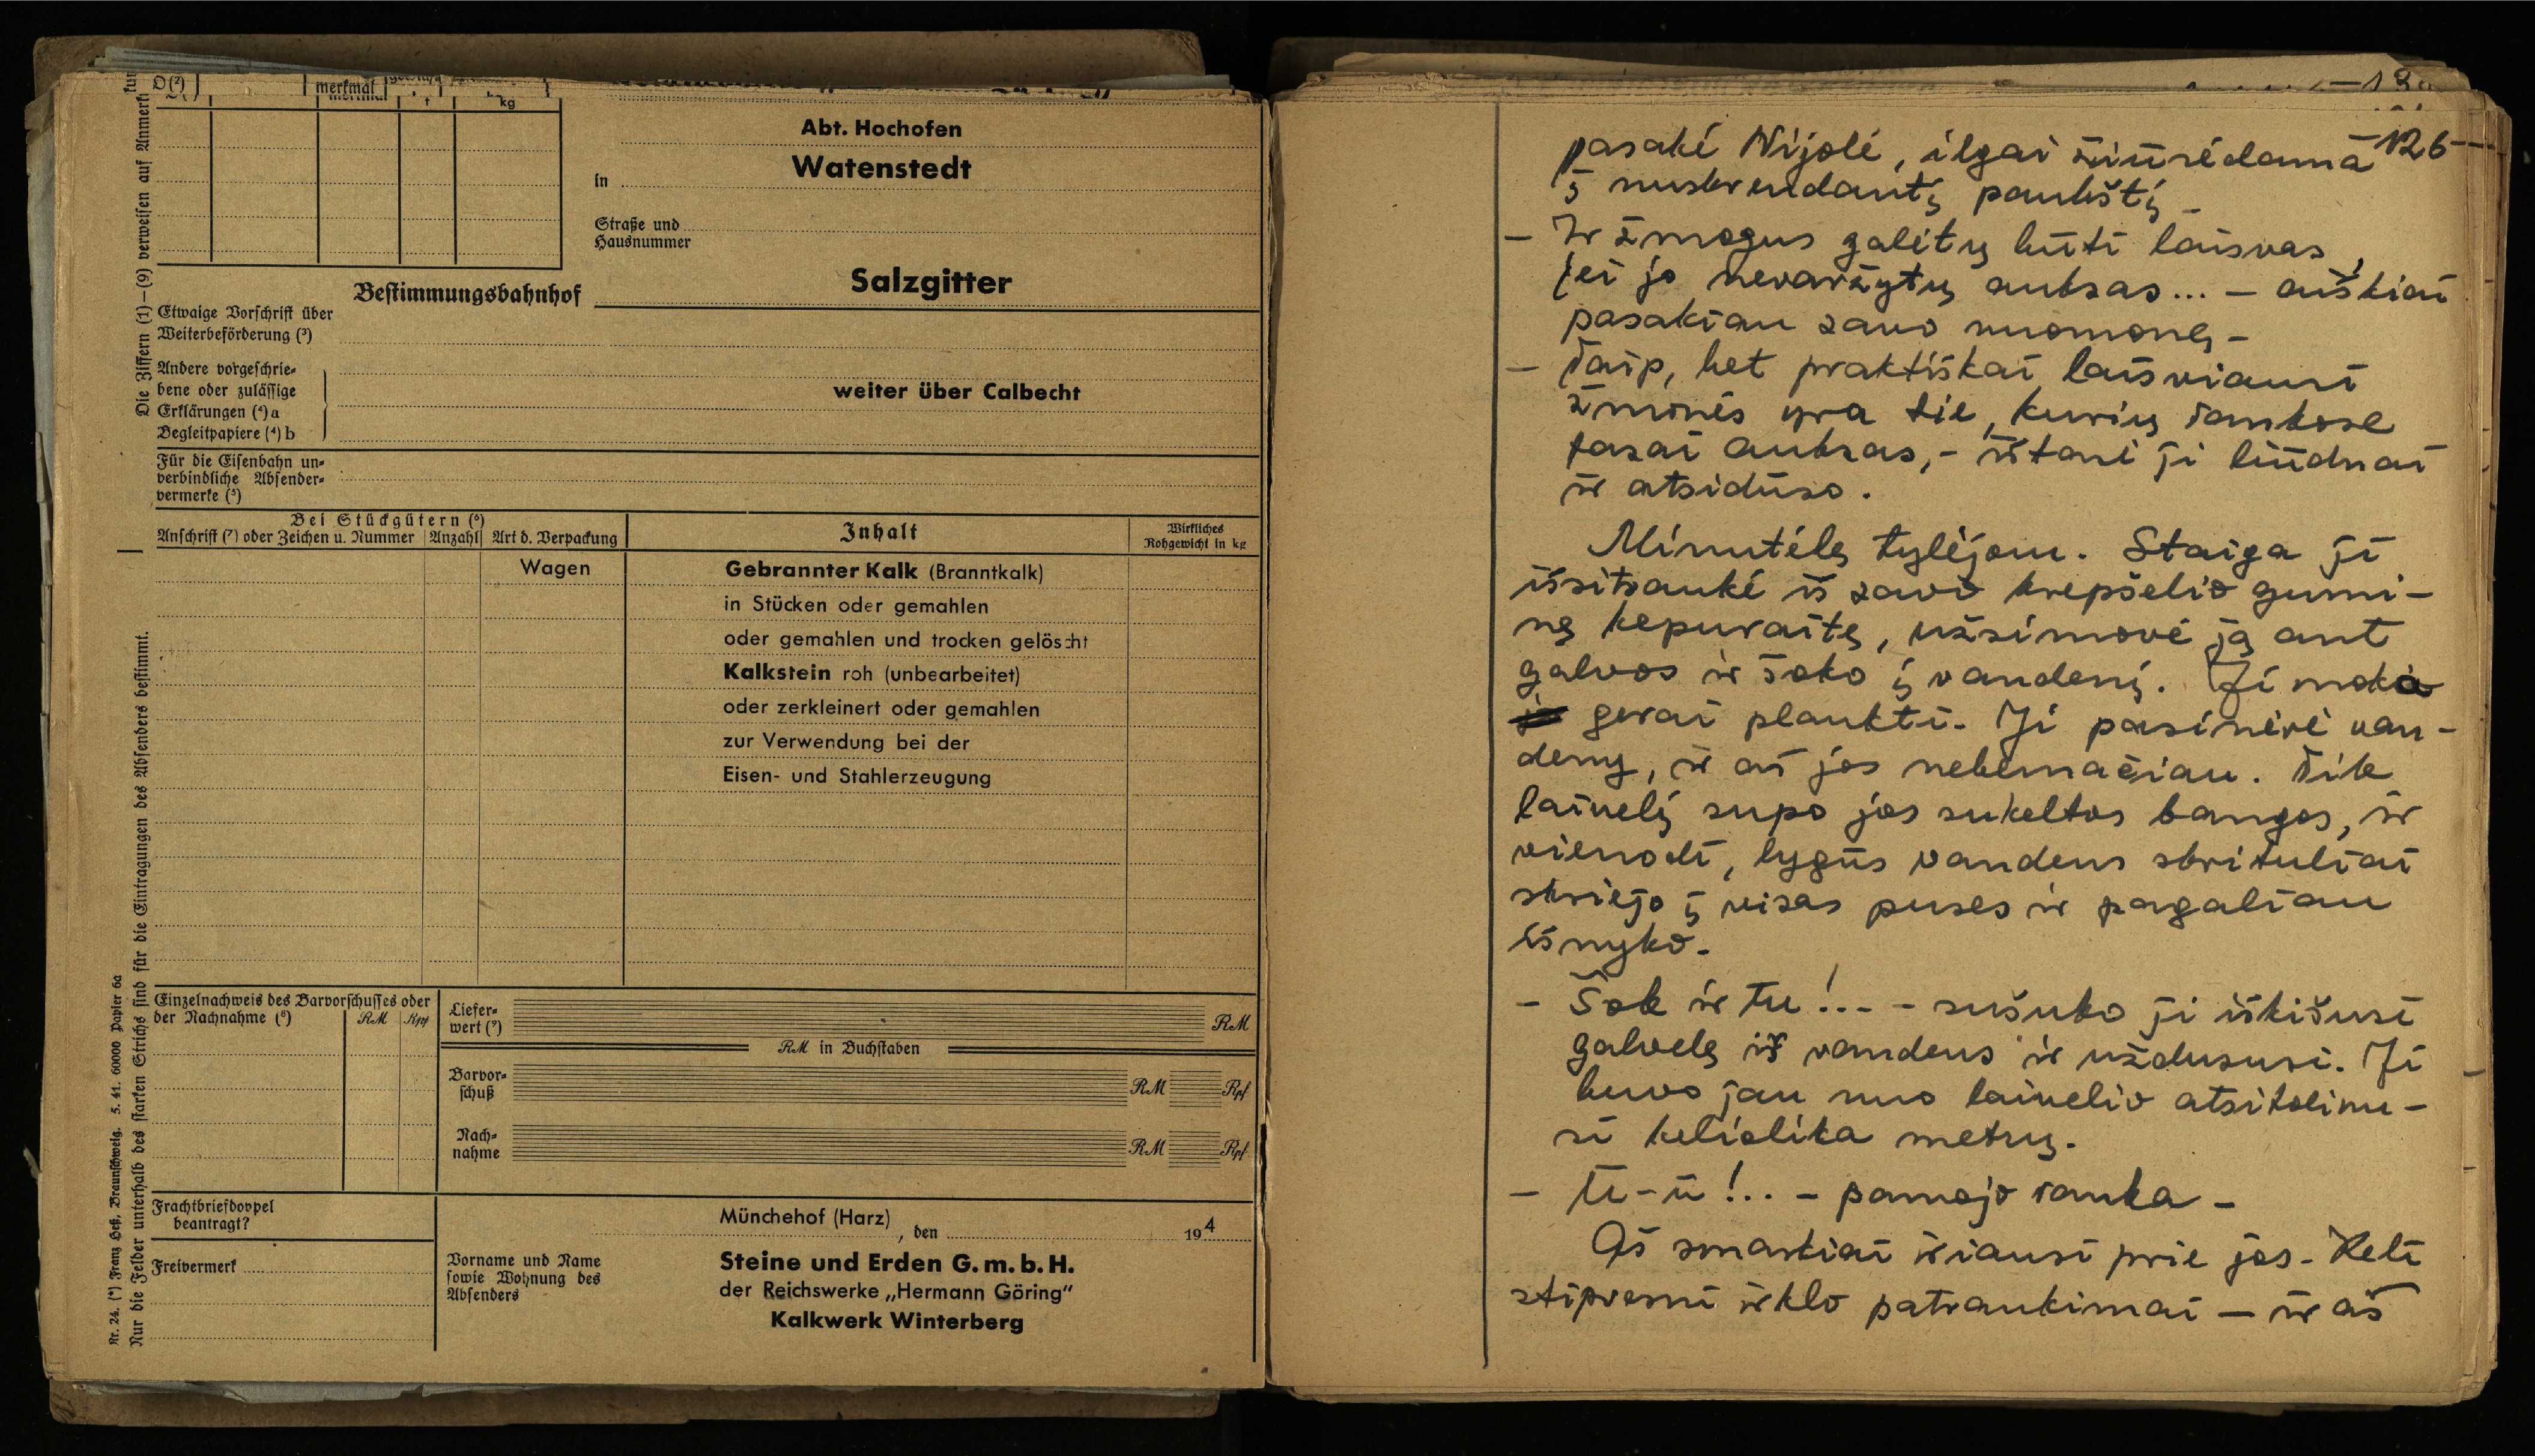 merkmal
kg
Abt. Hochofen
in Watenstedt
Straße und
Hausnummer
Salzgitter
Bestimmungsbahnhof
Etwaige Vorschrift über
Weiterbeförderung (³)
Andere vorgeschrie-
bene oder zulässige
Erklärungen (⁴) a
Begleitpapiere (⁴) b
weiter über Calbecht
Für die Eisenbahn un-
verbindliche Absender-
vermerke (⁵)
Bei Stückgütern (⁶)
Anschrift (⁷) oder Zeichen u. Nummer
Anzahl
Art d. Verpackung
Inhalt
Wirkliches
Rohgewicht in kg
Wagen
Gebrannter Kalk (Branntkalk)
in Stücken oder gemahlen
oder gemahlen und trocken gelöscht
Kalkstein roh (unbearbeitet)
oder zerkleinert oder gemahlen
zur Verwendung bei der
Eisen- und Stahlerzeugung
Einzelnachweis des Barvorschusses oder
der Nachnahme (⁸)
RM Rpf
Liefer-
wert (⁹)
RM
RM in Buchstaben
Barvor-
schuß
RM Rpf
Nach-
nahme
RM Rpf
Frachtbriefdoppel
beantragt?
Freivermerk
Münchehof (Harz), den 194
Vorname und Name
sowie Wohnung des
Absenders
Steine und Erden G.m.b.H.
der Reichswerke „Hermann Göring"
Kalkwerk Winterberg
Die Ziffern (1)–(9) verweisen auf Anmerkun
Nur die Felder unterhalb des starken Strichs sind für die Eintragungen des Absenders bestimmt.
Nr. 24. (*) Franz Heß, Braunschweig. 5. 41. 60000 Papier 6a
-126-
pasakė Nijolė, ilgai žiūrėdama
į nuskrendantį paukštį –
– Ir žmogus galėtų būti laisvas,
jei jo nevaržytų auksas... – aiškiai
pasakiau savo nuomonę –
– Taip, bet praktiškai laisviausi
žmonės yra tie, kurių rankose
tasai auksas, – ištarė ji liūdnai
ir atsiduso.
Minutėlę tylėjom. Staiga ji
išsitraukė iš savo krepšelio gumi-
nę kepuraitę, užsimovė ją ant
galvos ir šoko į vandenį. Ji moka
gerai plaukti. Ji pasinėrė van-
deny, ir aš jos nebemačiau. Tik
laivelį supo jos sukeltos bangos, ir
vienodi, lygūs vandens skrituliai
skriejo į visas puses ir pagaliau
išnyko.
– Šok ir tu!.. – sušuko ji iškišusi
galvelę iš vandens ir uždususi. Ji
buvo jau nuo laivelio atsitolinu-
si keliolika metrų.
– Ū-ū!.. – pamojo ranka –
Aš smarkiai iriausi prie jos. Keli
stipresni irklo patraukimai – ir aš